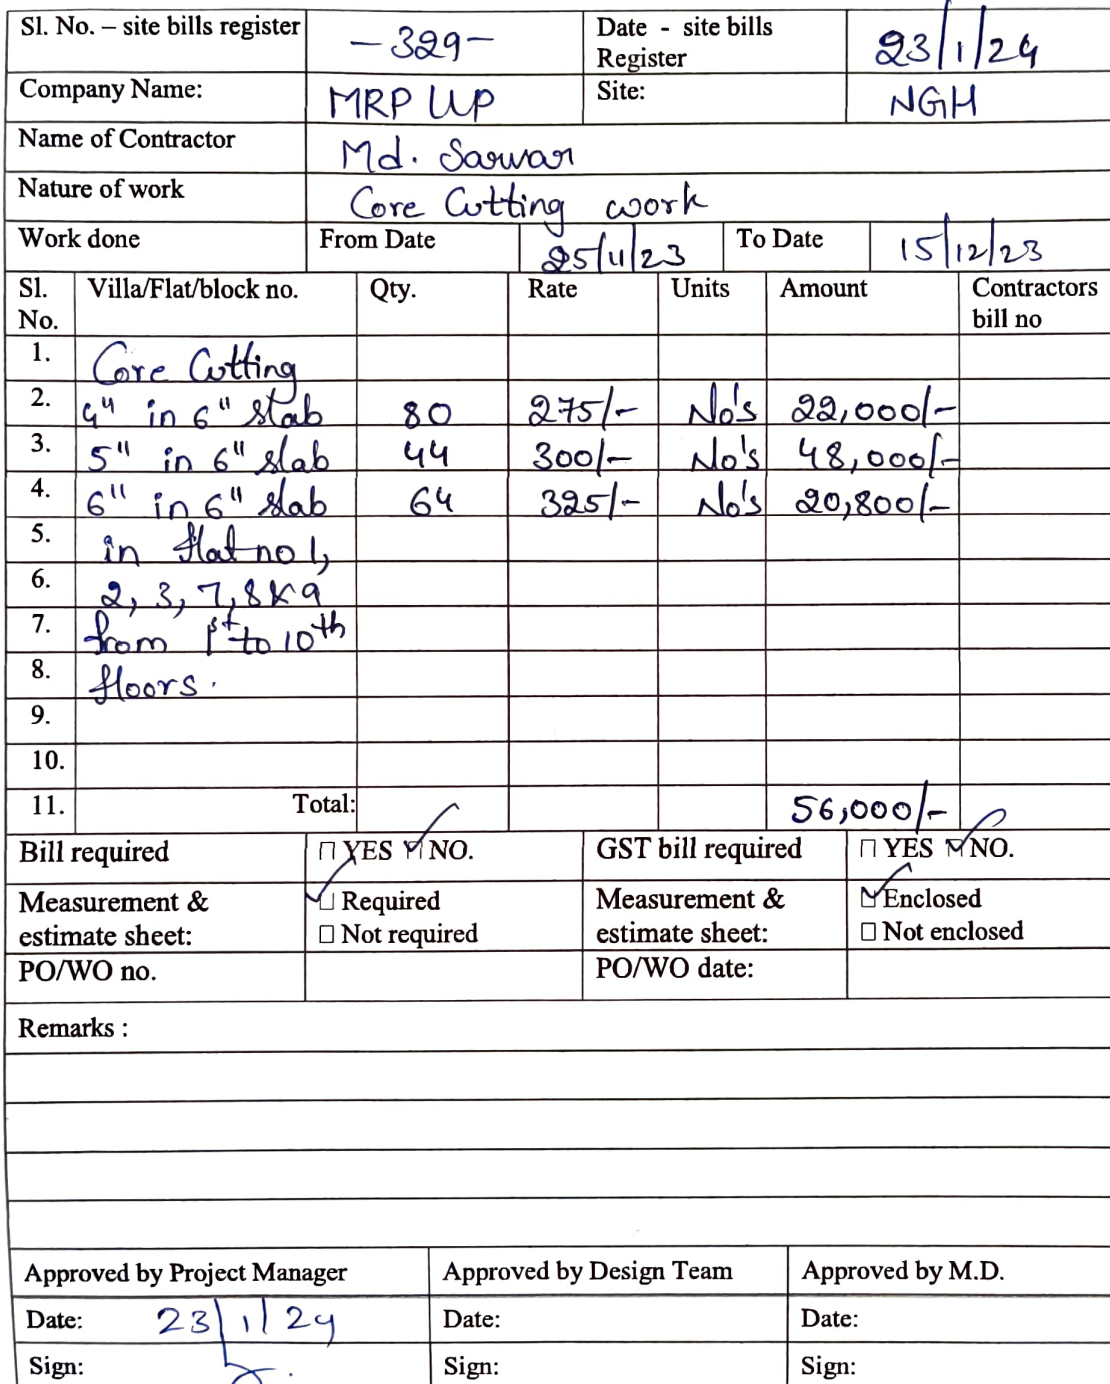 Sl. No. – site bills register -329- Date - site bills Register 23/1/24
Company Name: MRP LLP Site: NGH
Name of Contractor Md. Sarwar
Nature of work Core Cutting work
Work done From Date 25/11/23 To Date 15/12/23
Sl. No. Villa/Flat/block no. Qty. Rate Units Amount Contractors bill no
1. Core Cutting
2. 4" in 6" slab 80 275/- No's 22,000/-
3. 5" in 6" slab 44 300/- No's 48,000/-
4. 6" in 6" slab 64 325/- No's 20,800/-
5. in flat no 1,
6. 2, 3, 7, 8 & 9
7. from 1st to 10th
8. floors.
9.
10.
11. Total: 56,000/-
Bill required YES NO. GST bill required YES NO.
Measurement & estimate sheet: Required Measurement & estimate sheet: Enclosed
Not required Not enclosed
PO/WO no. PO/WO date:
Remarks :
Approved by Project Manager Approved by Design Team Approved by M.D.
Date: 23/1/24 Date: Date:
Sign: Sign: Sign: